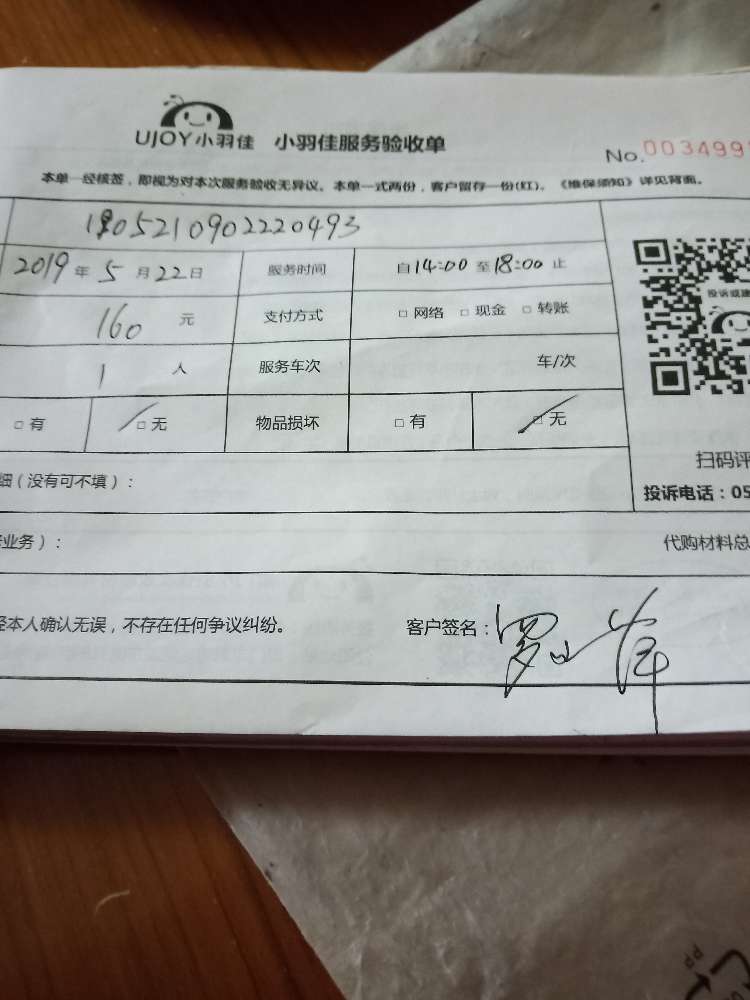 UJOY小羽佳 小羽佳服务验收单
No. 003499
本单一经核签，即视为对本次服务验收无异议。本单一式两份，客户留存一份(红)。《维保须知》详见背面。
190521090222​0493
2019 年 5 月 22 日 服务时间 自 14:00 至 18:00 止
160 元 支付方式 □ 网络 □ 现金 □ 转账
1 人 服务车次 车/次
□ 有 □ 无 物品损坏 □ 有 □ 无
投诉或建
扫码评
细（没有可不填）：
投诉电话：05
业务）：
代购材料总
经本人确认无误，不存在任何争议纠纷。
客户签名：罗
PP